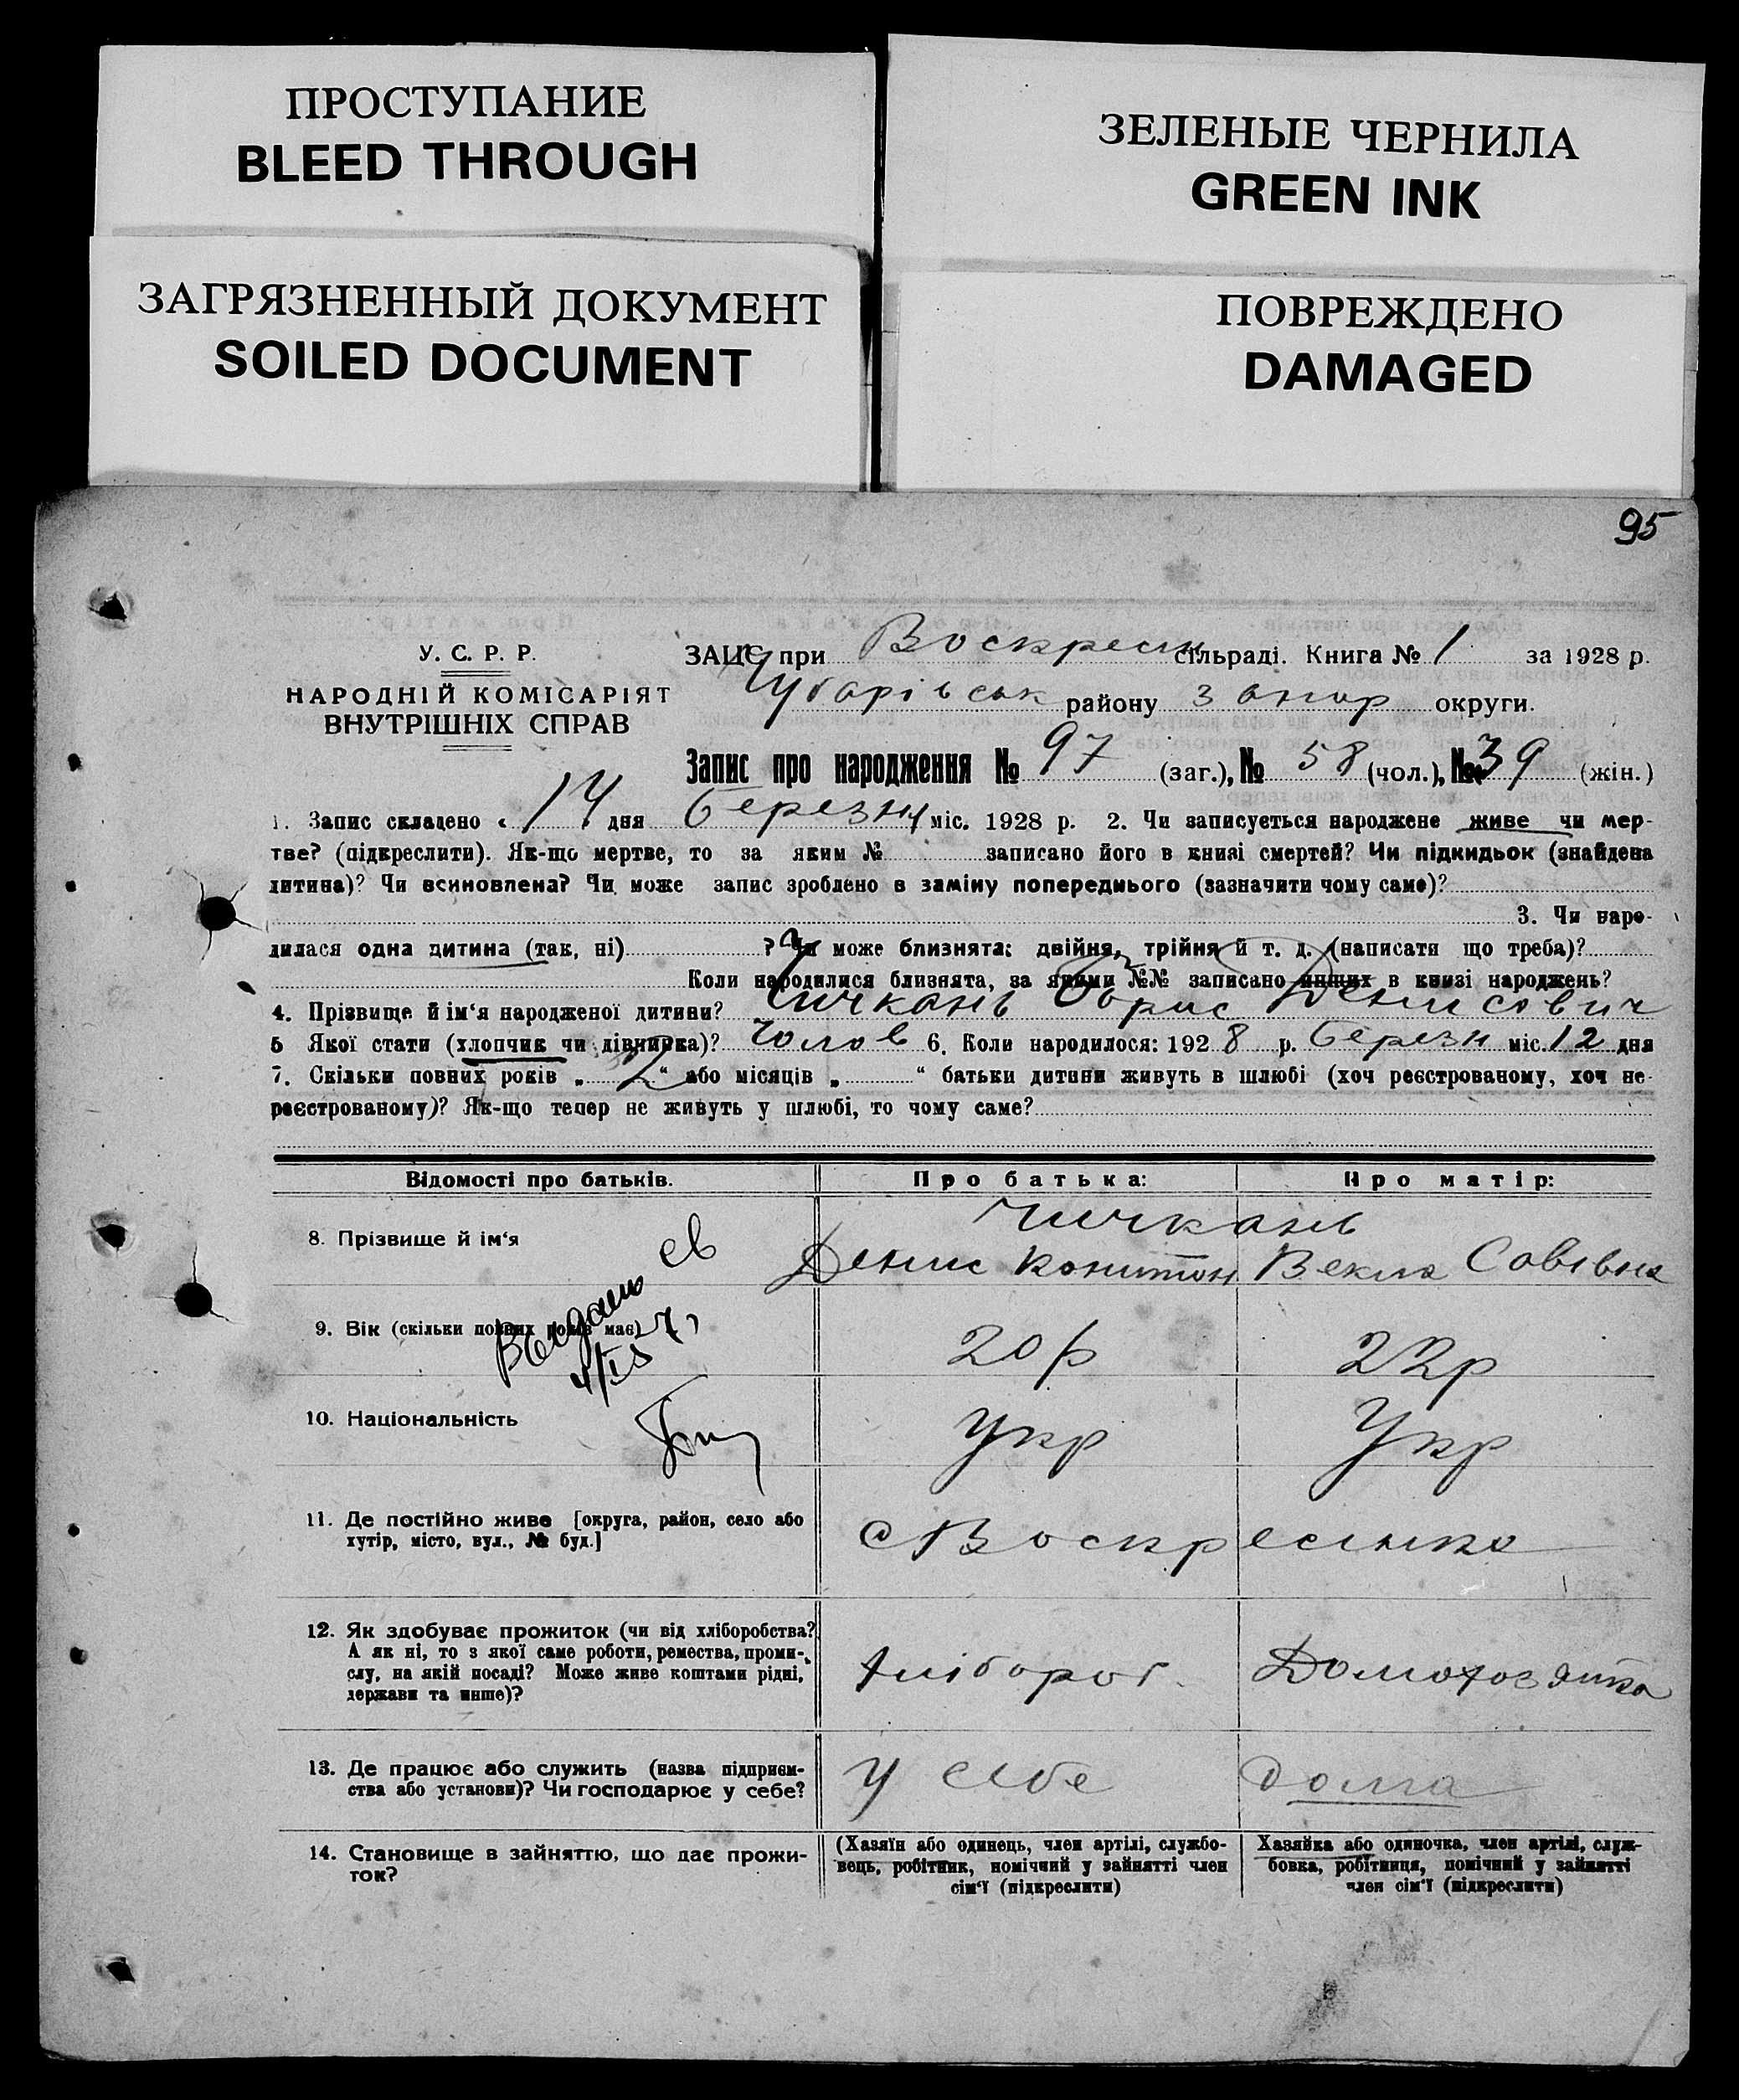 ПРОСТУПАНИЕ
BLEED THROUGH
ЗЕЛЕНЫЕ ЧЕРНИЛА
GREEN INK
ЗАГРЯЗНЕННЫЙ ДОКУМЕНТ
SOILED DOCUMENT
ПОВРЕЖДЕНО
DAMAGED
95
У. С. Р. Р.
НАРОДНІЙ КОМІСАРІЯТ
ВНУТРІШНІХ СПРАВ
ЗАЦС при Воскресен сільраді. Книга № 1 за 1928 р.
Чубарівськ району Запор округи.
Запис про народження № 97 (заг.), № 58 (чол.), № 39 (жін.)
1. Запис складено « 14 дня березня міс. 1928 р. 2. Чи записується народжене живе чи мер-
тве? (підкреслити). Як-що мертве, то за яким № записано його в книзі смертей? Чи підкидьок (знайдена
дитина)? Чи всиновлена? Чи може запис зроблено в заміну попереднього (зазначити чому саме)?
3. Чи наро-
дилася одна дитина (так, ні) ? Чи може близнята: двійня, трійня й т. д. (написати що треба)?
Коли народилися близнята, за якими №№ записано инших в книзі народжень?
4. Прізвище й ім'я народженої дитини? Чичкань Борис Денисович
5 Якої стати (хлопчик чи дівчинка)? Чолов 6. Коли народилося: 1928 р. Березн міс. 12 дня
7. Скільки повних років „ 2 “ або місяців „ “ батьки дитини живуть в шлюбі (хоч реєстрованому, хоч не-
реєстрованому)? Як-що тепер не живуть у шлюбі, то чому саме?
Відомості про батьків. Про батька: Про матір:
8. Прізвище й ім'я Чичкань
Денис Векла Савівна
9. Вік (скільки повних років має) 20 р 22 р
Видано
10. Національність Укр Укр
11. Де постійно живе [округа, район, село або
хутір, місто, вул., № буд.]
с Воскресенка
12. Як здобуває прожиток (чи від хліборобства?
А як ні, то з якої саме роботи, ремества, проми-
слу, на якій посаді? Може живе коштами рідні,
держави та инше)?
Хлібороб. Домохозяйка
13. Де працює або служить (назва підприєм-
ства або установи)? Чи господарює у себе?
У себе дома
14. Становище в зайняттю, що дає прожи-
ток?
(Хазяїн або одинець, член артілі, службо-
вець, робітник, помічний у зайнятті член
сім'ї (підкреслити)
Хазяйка або одиночка, член артілі, служ-
бовка, робітниця, помічний у зайнятті
член сім'ї (підкреслити)